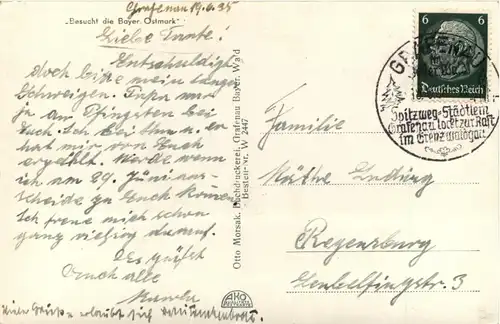 Grafenau 19.6.35
„Besucht die Bayer. Ostmark"
Liebe Tante!
Entschuldige
doch bitte mein langes
Schweigen. Papa war
ja an Pfingsten bei
Euch. Ich bei Ihm u. er
hat mir von Euch
erzählt. Werde wenn
ich am 29. Juni aus-
scheide zu Euch kommen.
Ich freue mich schon
ganz riesig darauf.
Es grüßt
Euch alle
Viele Grüße erlaubt sich
Otto Morsak, Buchdruckerei, Grafenau Bayer. Wald
Bestell-Nr. W 2447
AKO
6 6
Deutsches Reich
GRAFENAU
Spitzweg-Städtlein
Grafenau lockt zur Rast
im Grenzwaldgau!
Familie
Käthe Ludwig
Regensburg
3